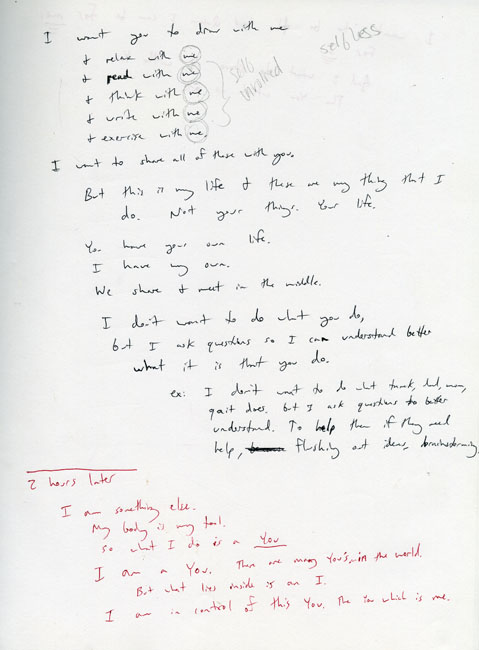 I want you to draw with me
& relax with me
& read with me
& think with me
& write with me
& exercise with me.
self involved
selfless
I want to share all of these with you.
But this is my life & these are my thing that I
do. Not your things. Your life.
You have your own life.
I have my own.
We share & meet in the middle.
I don't want to do what you do,
but I ask questions so I can understand better
what it is that you do.
ex: I don't want to do what dad, mom,
does. but I ask questions to better
understand. To help them if they need
help, flushing out ideas, brainstorming.
2 hours later
I am something else.
My body is my tool.
So what I do is a You
I am a You. There are many You's in the world.
But what lies inside is an I.
I am in control of this You. The You which is me.